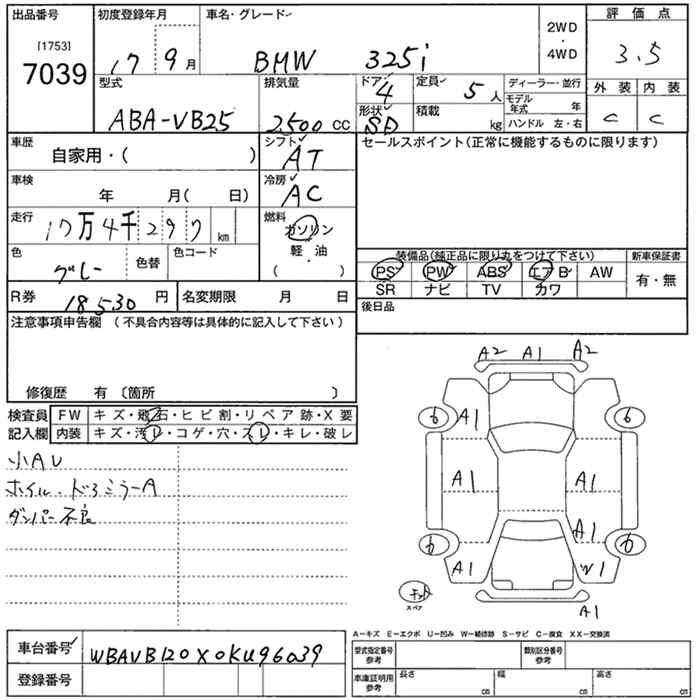 出品番号 初度登録年月 車名・グレード 評価点
[1753]
7039
17 9月 BMW 325i
2WD
・
4WD
3.5
型式 排気量 ドア 定員 ディーラー・並行 外装 内装
ABA-VB25 2500cc 4 5人
モデル年式 年
形状 積載 ハンドル 左・右
SD kg C C
車歴 シフト セールスポイント(正常に機能するものに限ります)
自家用・( ) AT
車検 冷房
年 月( 日) AC
走行 燃料
17万4千297km ガソリン
・
軽・油
( )
色 色替 色コード
グレー
装備品(純正品に限り丸をつけて下さい) 新車保証書
PS PW ABS エアB AW 有・無
SR ナビ TV カワ
R券 18530円 名変期限 月 日 後日品
注意事項申告欄 (不具合内容等は具体的に記入して下さい)
修復歴 有 〔箇所 〕
検査員 FW キズ・飛石・ヒビ割・リペア跡・X要
記入欄 内装 キズ・汚レ・コゲ・穴・スレ・キレ・破レ
小AU
ホイル・ドアミラーA
ダンパー不良
A2 A1 A2
6 A1 6
A1 A1
A1
6 6
A1 W1
スペア
A1
A−キズ E−エクボ U−凹み W−補修跡 S−サビ C−腐食 XX−交換済
車台番号 WBAVB120X0KU96039
登録番号
型式指定番号 類別区分番号
参考 参考
車庫証明用 長さ 幅 高さ
参考 cm cm cm